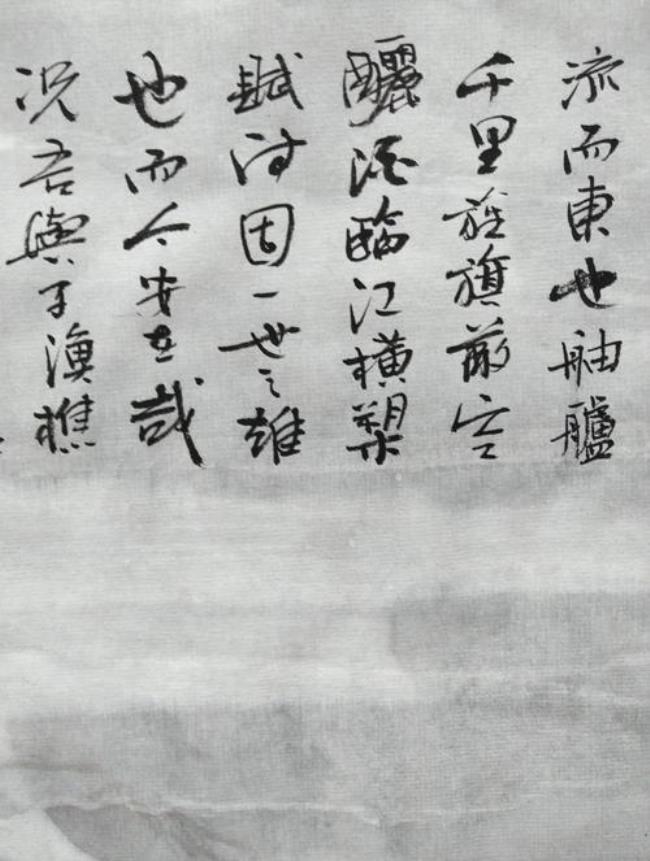 流而東也舳艫
千里旌旗蔽空
釃酒臨江橫槊
賦詩固一世之雄
也而今安在哉
况吾與子漁樵